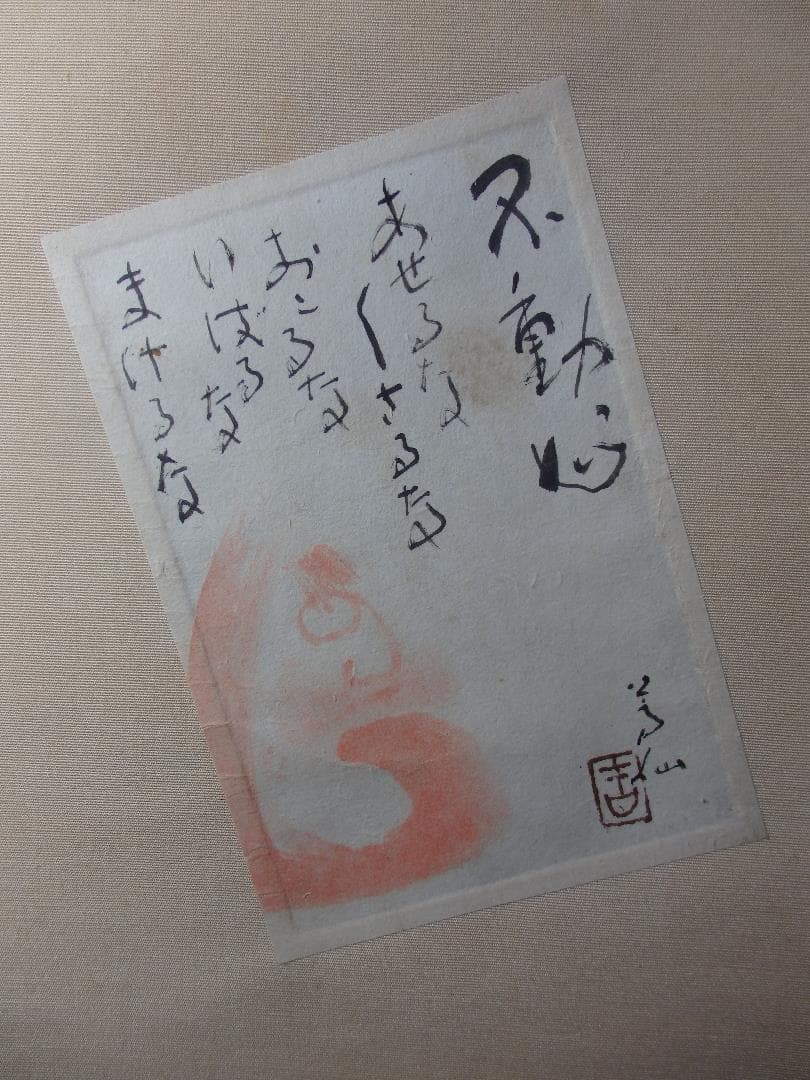 不動心
あせるな
くさるな
おこるな
いばるな
まけるな